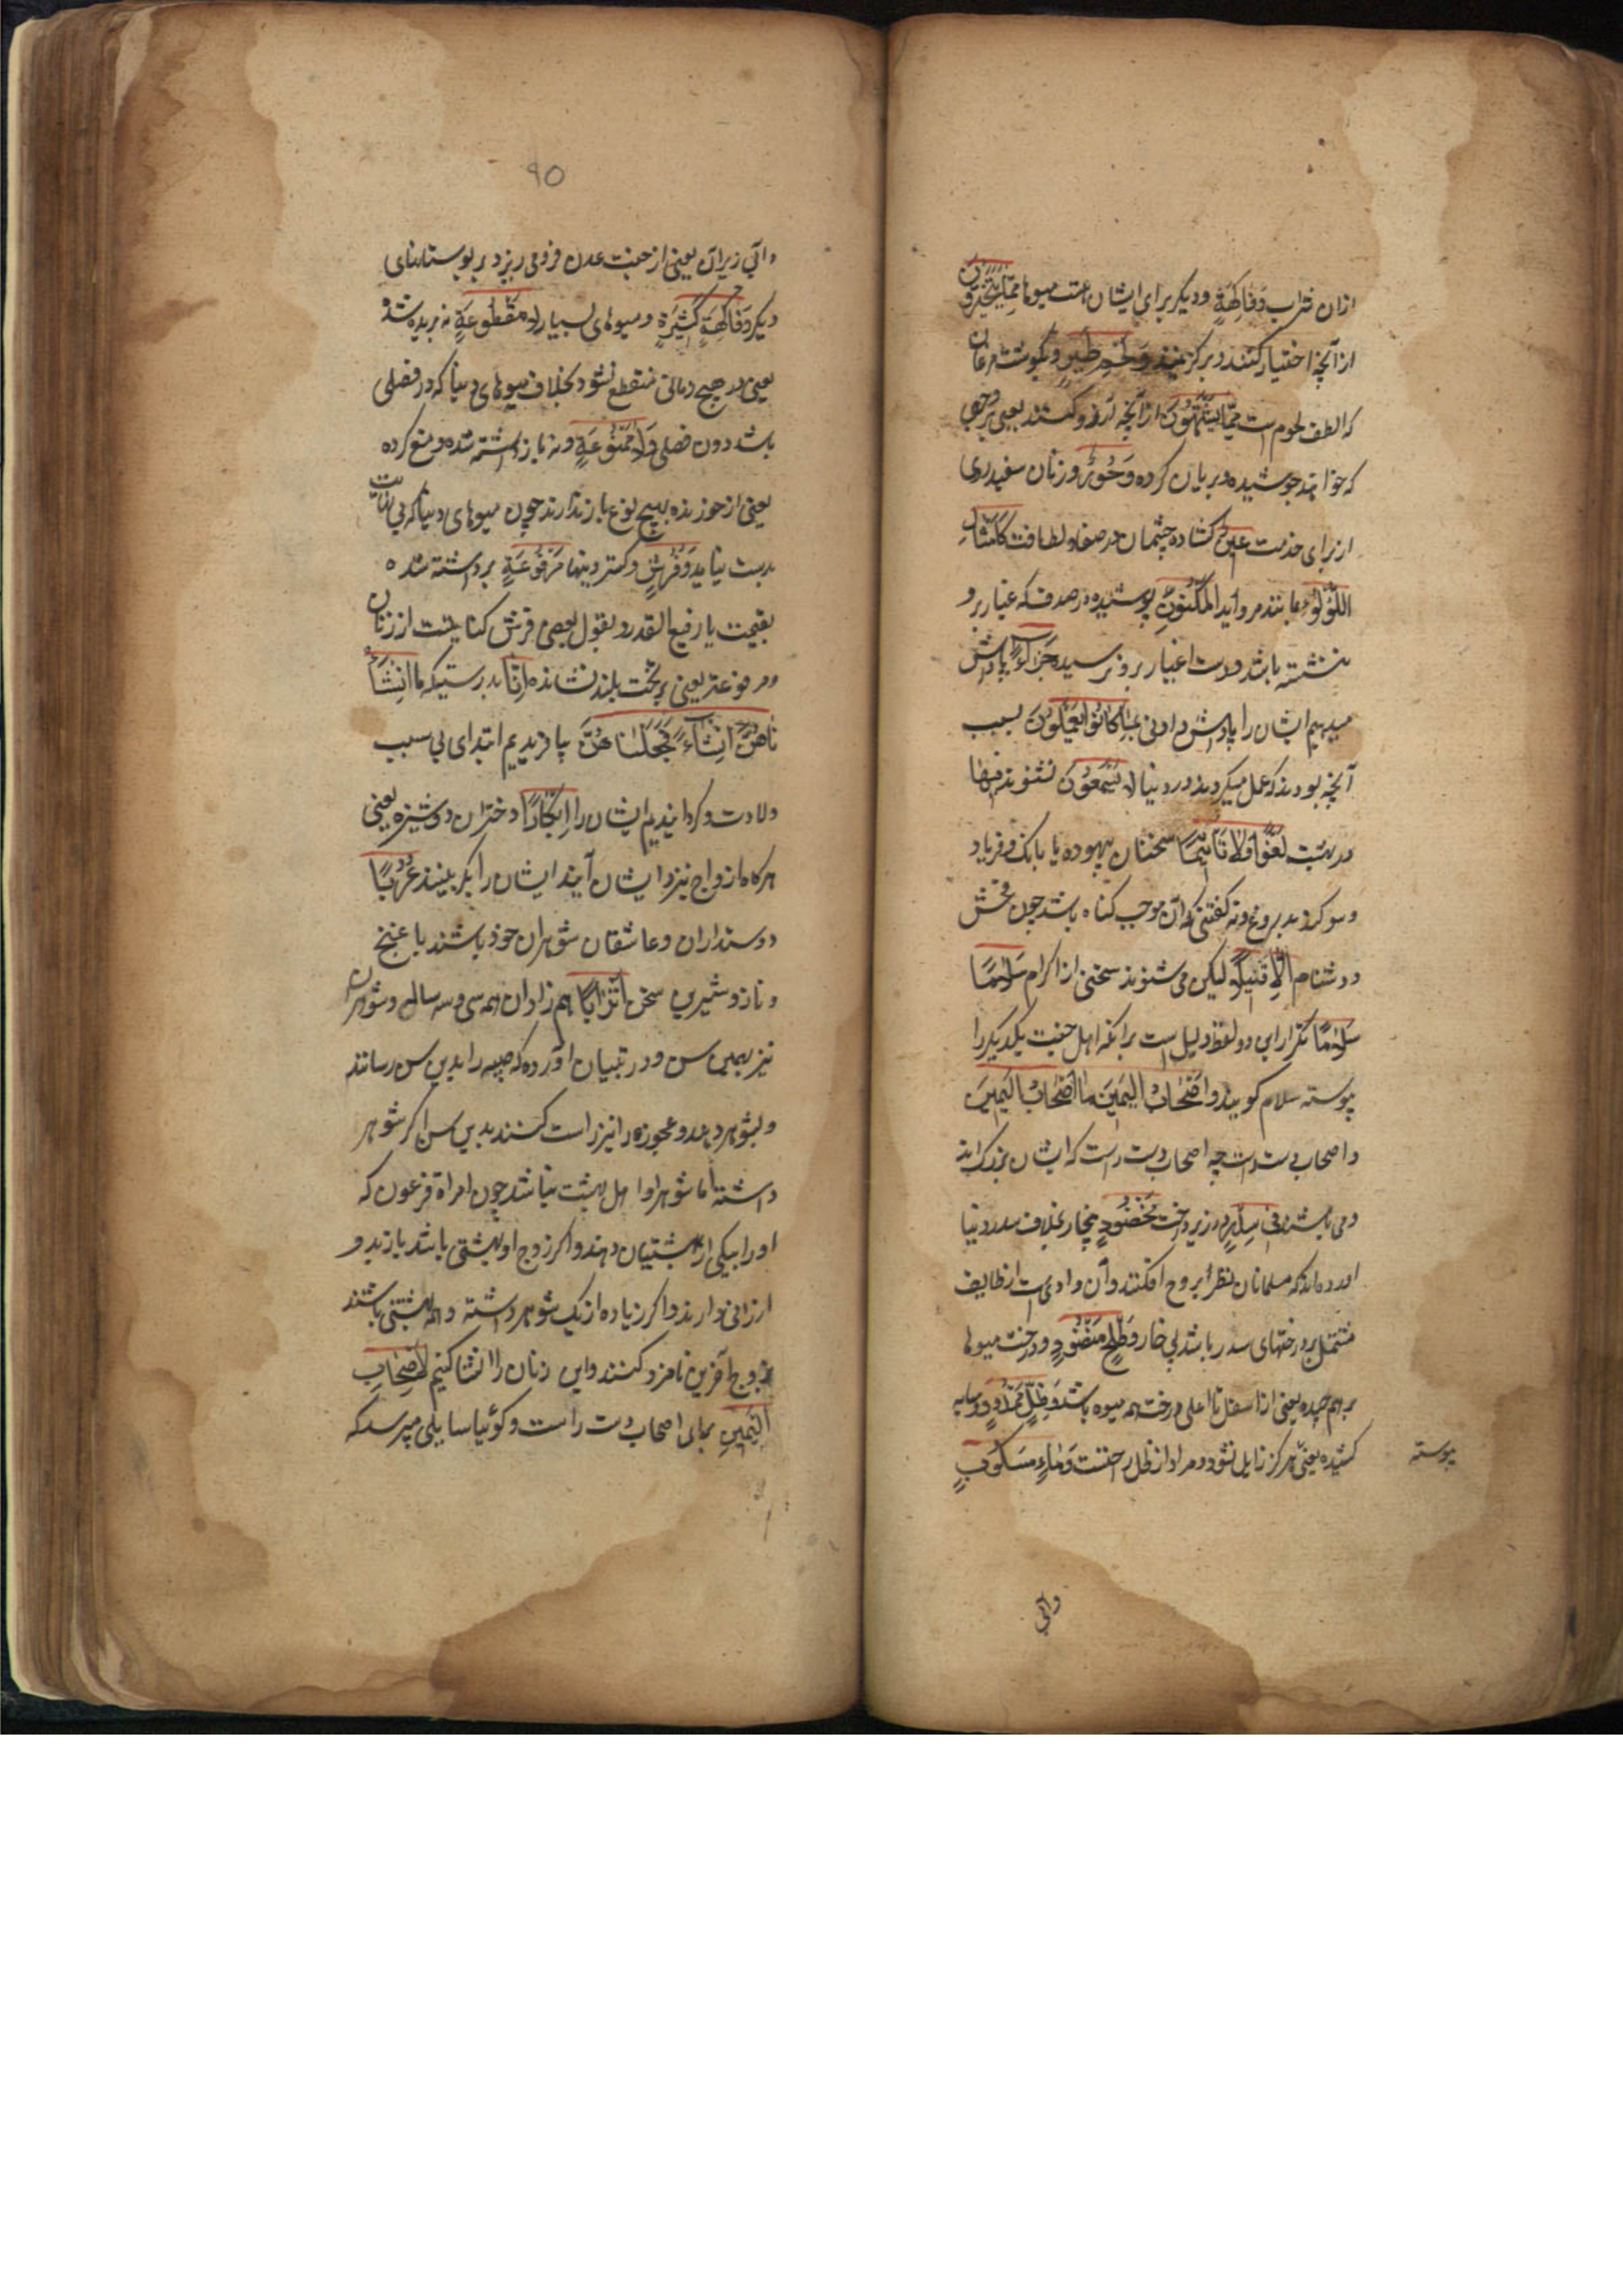 ازان شراب وَفَاكِهَةٍ و دیگر برای ایشان است میوها مِمَّا يَتَخَيَّرُونَ
از آنچه اختیار کنند و برگزینند وَلَحْمِ طَيْرٍ و گوشت مرغان
که الطف لحوم است مِمَّا يَشْتَهُونَ از آنچه آرزو کنند یعنی بر وجهی
که خواهند جوشیده و بریان کرده وَحُورٌ و زنان سفید روی
از برای خدمت عِينٌ کشاده چشمان در صفا و لطافت كَأَمْثَالِ
اللُّؤْلُؤِ مانند مروارید الْمَكْنُونِ پوشیده در صدف که غبار برو
ننشسته باشد و دست اغیار برو نرسیده جَزَاءً پاداش
میدهیم ایشان را پاداش دادنی بِمَا كَانُوا يَعْمَلُونَ بسبب
آنچه بودند که عمل میکردند در دنیا لَا يَسْمَعُونَ نشنوند فِيهَا
در بهشت لَغْوًا وَلَا تَأْثِيمًا سخنان بیهوده یا بانک و فریاد
و سوکند بدروغ و نه کفتنی که آن موجب کناه باشد چون فحش
و دشنام إِلَّا قِيلًا لیکن می شنوند سخنی از اکرام سَلَامًا
سَلَامًا تکرار این دو لفظ دلیل است برانکه اهل جنت یکدیکر را
پیوسته سلام کویند وَأَصْحَابُ الْيَمِينِ مَا أَصْحَابُ الْيَمِينِ
و اصحاب دست راست چه اصحاب دست راست که ایشان بزرک اند
و می باشند فِي سِدْرٍ در زیر درخت مَخْضُودٍ بیخار بخلاف سدر دنیا
آورده اند که مسلمانان نظر بر وج افکندند و آن وادی است از طایف
مشتمل بر درختهای سدر باشد بی خار وَطَلْحٍ مَنْضُودٍ و درخت میوها
بر هم چیده یعنی از اسفل تا اعلی درخت همه میوه باشد وَظِلٍّ مَمْدُودٍ و سایه
کشیده یعنی هرکز زایل نشود و مراد از ظل راحتست وَمَاءٍ مَسْكُوبٍ
پیوسته
وآبی
۹۰
وآبی ریزان یعنی از جنت عدن فرو می ریزد بر بوستانهای
دیکر وَفَاكِهَةٍ كَثِيرَةٍ و میوهای بسیار لَا مَقْطُوعَةٍ نه بریده شده
یعنی در هیچ زمانی منقطع نشود بخلاف میوهای دنیا که در فصلی
باشد دون فصلی وَلَا مَمْنُوعَةٍ و نه باز داشته شده و منع کرده
یعنی از خورنده بهیچ نوع باز ندارند چون میوهای دنیا که بی
بدست نیاید وَفُرُشٍ و کستردنیها مَرْفُوعَةٍ برداشته شده
بقیمت یا رفیع القدر و بقول بعضی فرش کنایتست از زنان
و مرفوعه یعنی بر تخت بلند نشانده إِنَّا بدرستیکه ما أَنْشَأْ
نَاهُنَّ إِنْشَاءً فَجَعَلْنَاهُنَّ بیافریدیم ابتدای بی سبب
ولادت و کردانیدیم ایشان را أَبْكَارًا دختران دوشیزه یعنی
هرکاه ازواج نزد ایشان آیند ایشان را بکر بینند عُرُبًا
دوستداران و عاشقان شوهران خود باشند با غنج
و ناز و شیرین سخن أَتْرَابًا هم زادان همه سی و سه ساله و شوهران
نیز بهمین سن و در تبیان آورده که صبیه را بدین سن رسانند
و بشوهر دهند و عجوزه را نیز راست کنند بدین سن اکر شوهر
داشته اما شوهر او اهل بهشت نباشد چون امراة فرعون که
او را بیکی از بهشتیان دهند و اکر زوج او بهشتی باشد باز بدو
ارزانی دارند و اکر زیاده از یک شوهر داشته و همه بهشتی باشند
بزوج آخرین نامزد کنند و این زنان را انشا کنیم لِأَصْحَابِ
الْيَمِينِ برای اصحاب دست راست و کوئیا سایلی میپرسد که